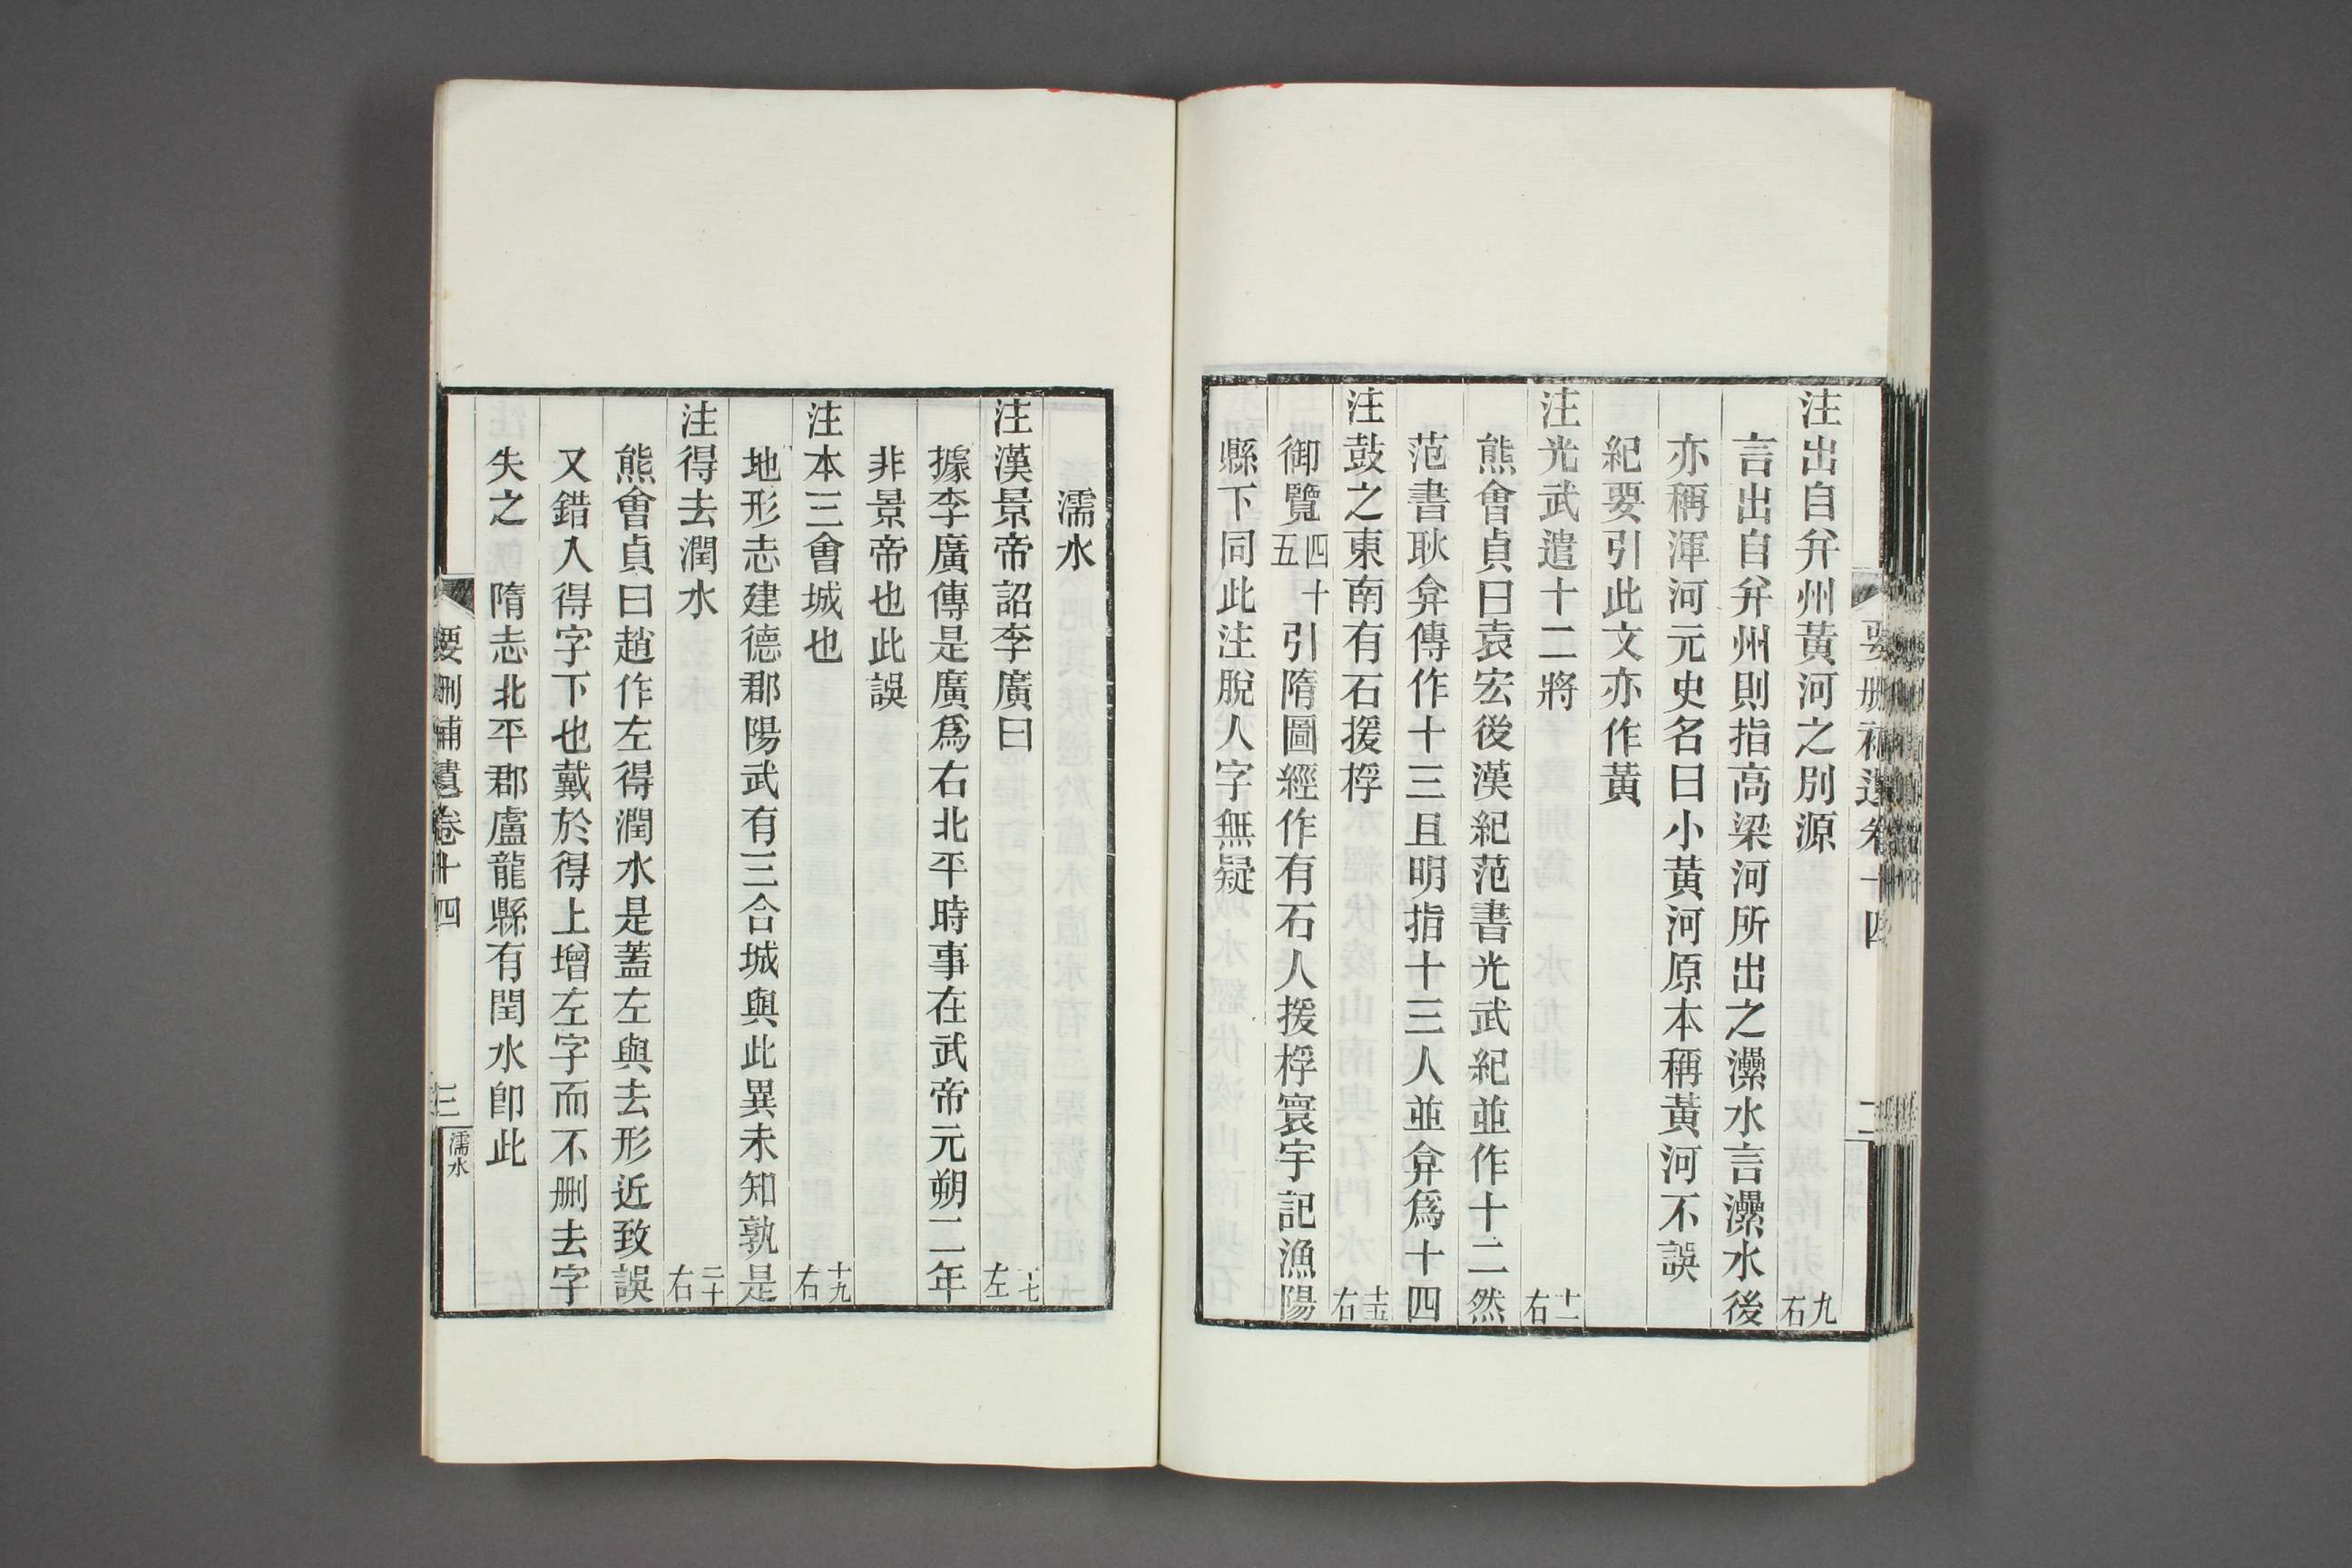 要刪補遺卷十四
二
注出自弁州黃河之別源 九右
言出自弁州則指高梁河所出之灅水言灅水後
亦稱渾河元史名曰小黃河原本稱黃河不誤
紀要引此文亦作黃
注光武遣十二將 十一右
熊會貞曰袁宏後漢紀范書光武紀並作十二然
范書耿弇傳作十三且明指十三人並弇爲十四
注鼓之東南有石援桴 十五右
御覽四十五引隋圖經作有石人援桴寰宇記漁陽
縣下同此注脫人字無疑
濡水
注漢景帝詔李廣曰 十七左
據李廣傳是廣爲右北平時事在武帝元朔二年
非景帝也此誤
注本三會城也 十九右
地形志建德郡陽武有三合城與此異未知孰是
注得去潤水 二十右
熊會貞曰趙作左得潤水是蓋左與去形近致誤
又錯入得字下也戴於得上增左字而不刪去字
失之　隋志北平郡盧龍縣有閏水卽此
要刪補遺卷十四
三
濡水